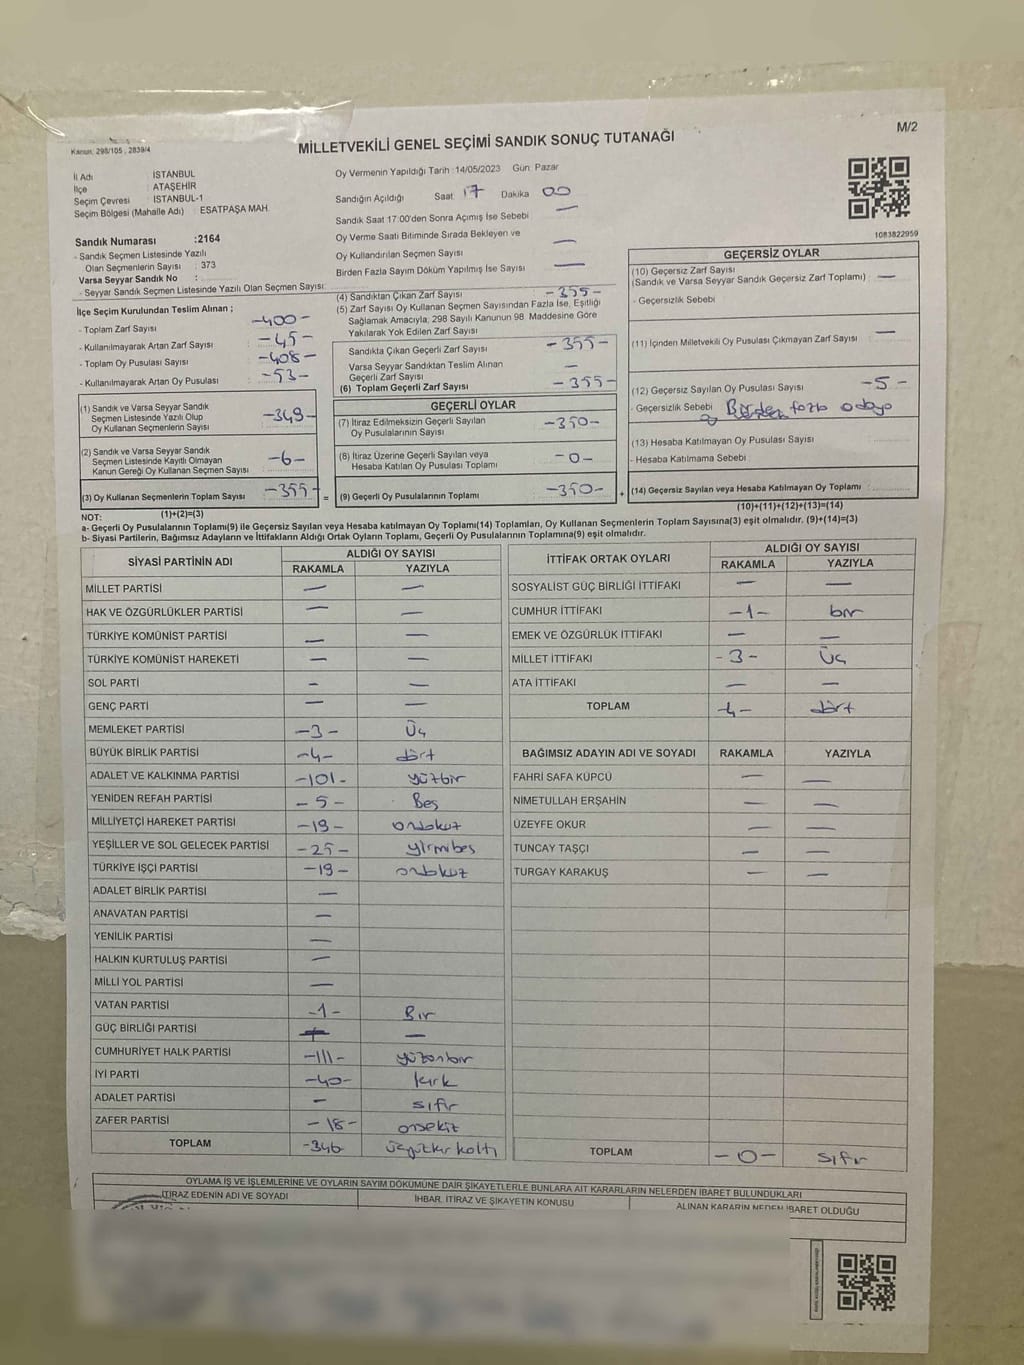 M/2
Kanun: 298/105, 2839/4
MİLLETVEKİLİ GENEL SEÇİMİ SANDIK SONUÇ TUTANAĞI
İl Adı : İSTANBUL
İlçe : ATAŞEHİR
Seçim Çevresi : İSTANBUL-1
Seçim Bölgesi (Mahalle Adı) : ESATPAŞA MAH.
Sandık Numarası :2164
- Sandık Seçmen Listesinde Yazılı
Olan Seçmenlerin Sayısı : 373
Varsa Seyyar Sandık No :
- Seyyar Sandık Seçmen Listesinde Yazılı Olan Seçmen Sayısı:
Oy Vermenin Yapıldığı Tarih :14/05/2023 Gün: Pazar
Sandığın Açıldığı Saat 17 Dakika 00
Sandık Saat 17:00'den Sonra Açımış İse Sebebi —
Oy Verme Saati Bitiminde Sırada Bekleyen ve
Oy Kullandırılan Seçmen Sayısı —
Birden Fazla Sayım Döküm Yapılmış İse Sayısı —
1083822959
İlçe Seçim Kurulundan Teslim Alınan ;
- Toplam Zarf Sayısı -400-
- Kullanılmayarak Artan Zarf Sayısı -45-
- Toplam Oy Pusulası Sayısı -408-
- Kullanılmayarak Artan Oy Pusulası -53-
(1) Sandık ve Varsa Seyyar Sandık
Seçmen Listesinde Yazılı Olup
Oy Kullanan Seçmenlerin Sayısı -349-
(2) Sandık ve Varsa Seyyar Sandık
Seçmen Listesinde Kayıtlı Olmayan
Kanun Gereği Oy Kullanan Seçmen Sayısı -6-
(3) Oy Kullanan Seçmenlerin Toplam Sayısı -355-
(1)+(2)=(3)
(4) Sandıktan Çıkan Zarf Sayısı -355-
(5) Zarf Sayısı Oy Kullanan Seçmen Sayısından Fazla İse, Eşitliği
Sağlamak Amacıyla, 298 Sayılı Kanunun 98. Maddesine Göre
Yakılarak Yok Edilen Zarf Sayısı
Sandıkta Çıkan Geçerli Zarf Sayısı -355-
Varsa Seyyar Sandıktan Teslim Alınan
Geçerli Zarf Sayısı —
(6) Toplam Geçerli Zarf Sayısı -355-
GEÇERLİ OYLAR
(7) İtiraz Edilmeksizin Geçerli Sayılan
Oy Pusulalarının Sayısı -350-
(8) İtiraz Üzerine Geçerli Sayılan veya
Hesaba Katılan Oy Pusulası Toplamı -0-
= (9) Geçerli Oy Pusulalarının Toplamı -350- +
GEÇERSİZ OYLAR
(10) Geçersiz Zarf Sayısı
(Sandık ve Varsa Seyyar Sandık Geçersiz Zarf Toplamı) —
- Geçersizlik Sebebi
(11) İçinden Milletvekili Oy Pusulası Çıkmayan Zarf Sayısı —
(12) Geçersiz Sayılan Oy Pusulası Sayısı -5-
- Geçersizlik Sebebi Birden fazla
(13) Hesaba Katılmayan Oy Pusulası Sayısı
- Hesaba Katılmama Sebebi
(14) Geçersiz Sayılan veya Hesaba Katılmayan Oy Toplamı
(10)+(11)+(12)+(13)=(14)
NOT:
a- Geçerli Oy Pusulalarının Toplamı(9) ile Geçersiz Sayılan veya Hesaba katılmayan Oy Toplamı(14) Toplamları, Oy Kullanan Seçmenlerin Toplam Sayısına(3) eşit olmalıdır. (9)+(14)=(3)
b- Siyasi Partilerin, Bağımsız Adayların ve İttifakların Aldığı Ortak Oyların Toplamı, Geçerli Oy Pusulalarının Toplamına(9) eşit olmalıdır.
SİYASİ PARTİNİN ADI ALDIĞI OY SAYISI
RAKAMLA YAZIYLA
MİLLET PARTİSİ — —
HAK VE ÖZGÜRLÜKLER PARTİSİ — —
TÜRKİYE KOMÜNİST PARTİSİ — —
TÜRKİYE KOMÜNİST HAREKETİ — —
SOL PARTİ — —
GENÇ PARTİ — —
MEMLEKET PARTİSİ -3- Üç
BÜYÜK BİRLİK PARTİSİ -4- dört
ADALET VE KALKINMA PARTİSİ -101- yüzbir
YENİDEN REFAH PARTİSİ -5- Beş
MİLLİYETÇİ HAREKET PARTİSİ -19- ondokuz
YEŞİLLER VE SOL GELECEK PARTİSİ -25- yirmibeş
TÜRKİYE İŞÇİ PARTİSİ -19- ondokuz
ADALET BİRLİK PARTİSİ —
ANAVATAN PARTİSİ —
YENİLİK PARTİSİ —
HALKIN KURTULUŞ PARTİSİ —
MİLLİ YOL PARTİSİ —
VATAN PARTİSİ -1- Bir
GÜÇ BİRLİĞİ PARTİSİ — —
CUMHURİYET HALK PARTİSİ -111- yüzonbir
İYİ PARTİ -40- kırk
ADALET PARTİSİ — sıfır
ZAFER PARTİSİ -18- onsekiz
TOPLAM -346- üçyüzkırkaltı
İTTİFAK ORTAK OYLARI ALDIĞI OY SAYISI
RAKAMLA YAZIYLA
SOSYALİST GÜÇ BİRLİĞİ İTTİFAKI — —
CUMHUR İTTİFAKI -1- bir
EMEK VE ÖZGÜRLÜK İTTİFAKI — —
MİLLET İTTİFAKI -3- Üç
ATA İTTİFAKI — —
TOPLAM -4- dört
BAĞIMSIZ ADAYIN ADI VE SOYADI RAKAMLA YAZIYLA
FAHRİ SAFA KÜPCÜ — —
NİMETULLAH ERŞAHİN — —
ÜZEYFE OKUR — —
TUNCAY TAŞÇI — —
TURGAY KARAKUŞ — —
TOPLAM -0- sıfır
OYLAMA İŞ VE İŞLEMLERİNE VE OYLARIN SAYIM DÖKÜMÜNE DAİR ŞİKAYETLERLE BUNLARA AİT KARARLARIN NELERDEN İBARET BULUNDUKLARI
İTİRAZ EDENİN ADI VE SOYADI
İHBAR, İTİRAZ VE ŞİKAYETİN KONUSU
ALINAN KARARIN NEDEN İBARET OLDUĞU